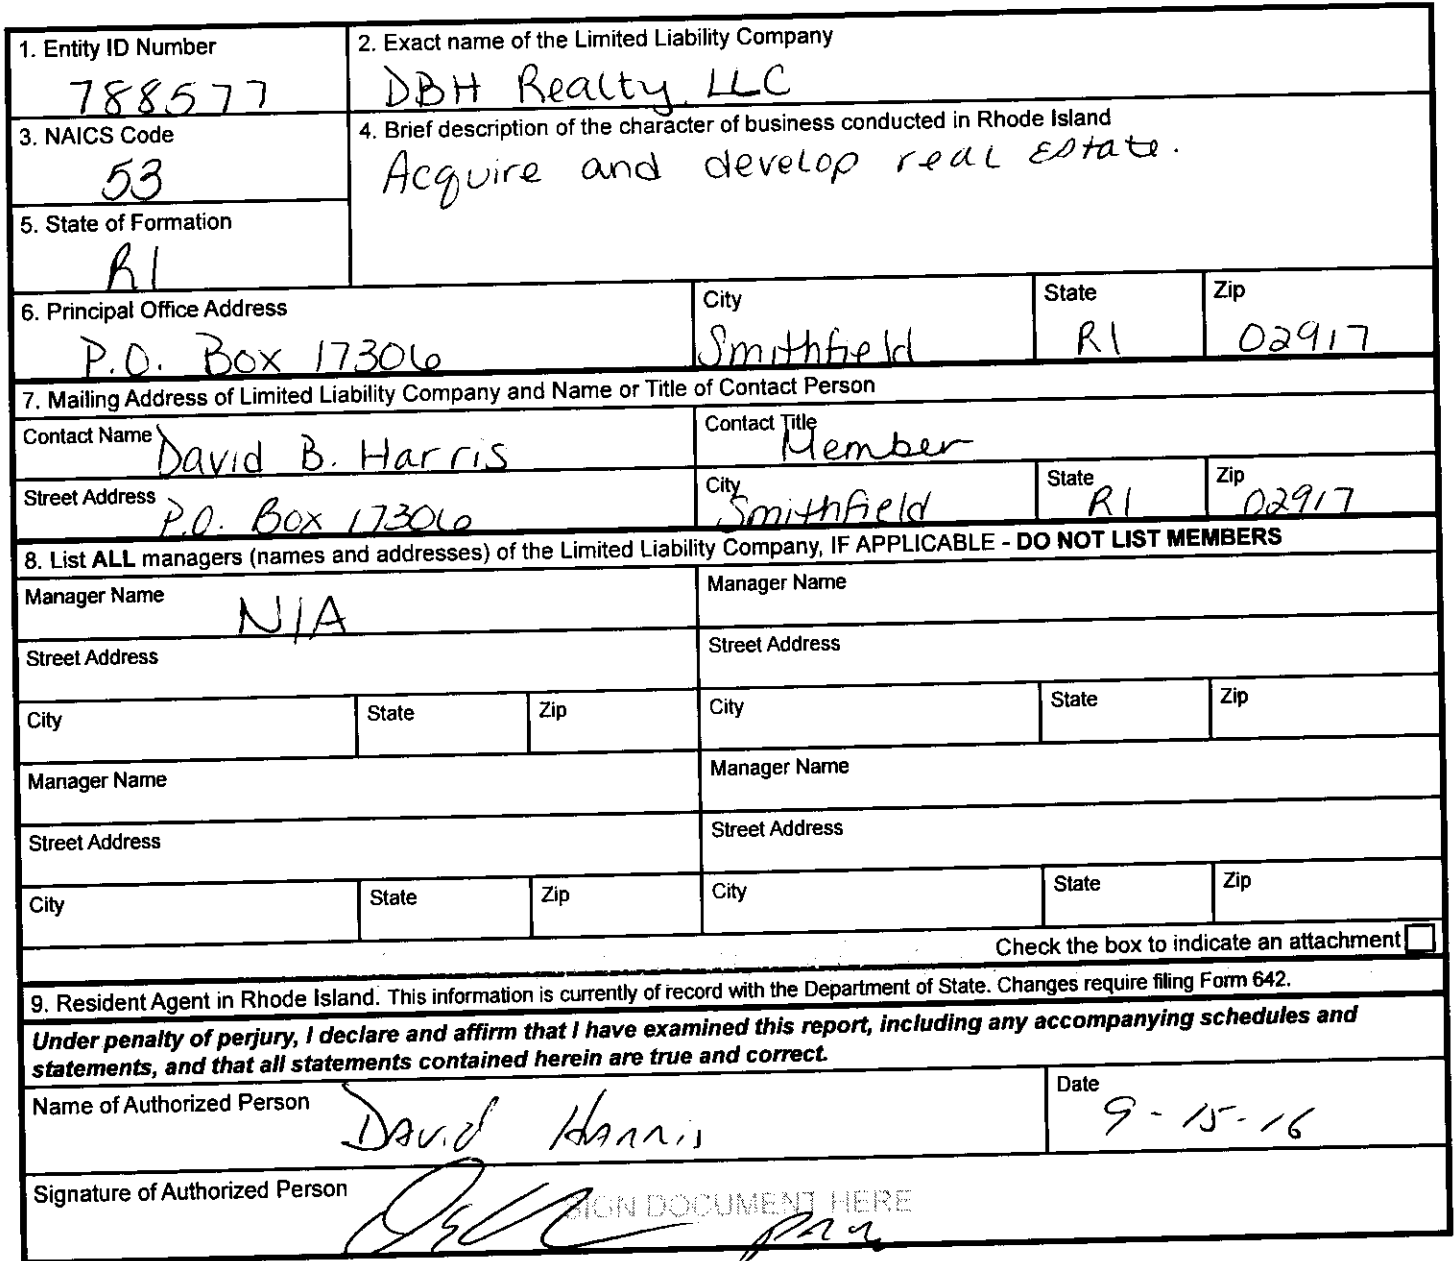 1. Entity ID Number
788577
2. Exact name of the Limited Liability Company
DBH Realty, LLC
3. NAICS Code
53
4. Brief description of the character of business conducted in Rhode Island
Acquire and develop real estate.
5. State of Formation
RI
6. Principal Office Address
P.O. Box 17306
City
Smithfield
State
RI
Zip
02917
7. Mailing Address of Limited Liability Company and Name or Title of Contact Person
Contact Name
David B. Harris
Contact Title
Member
Street Address
P.O. Box 17306
City
Smithfield
State
RI
Zip
02917
8. List ALL managers (names and addresses) of the Limited Liability Company, IF APPLICABLE - DO NOT LIST MEMBERS
Manager Name
N/A
Manager Name
Street Address
Street Address
City
State
Zip
City
State
Zip
Manager Name
Manager Name
Street Address
Street Address
City
State
Zip
City
State
Zip
Check the box to indicate an attachment
9. Resident Agent in Rhode Island. This information is currently of record with the Department of State. Changes require filing Form 642.
Under penalty of perjury, I declare and affirm that I have examined this report, including any accompanying schedules and
statements, and that all statements contained herein are true and correct.
Name of Authorized Person
David Harris
Date
9-15-16
Signature of Authorized Person
SIGN DOCUMENT HERE